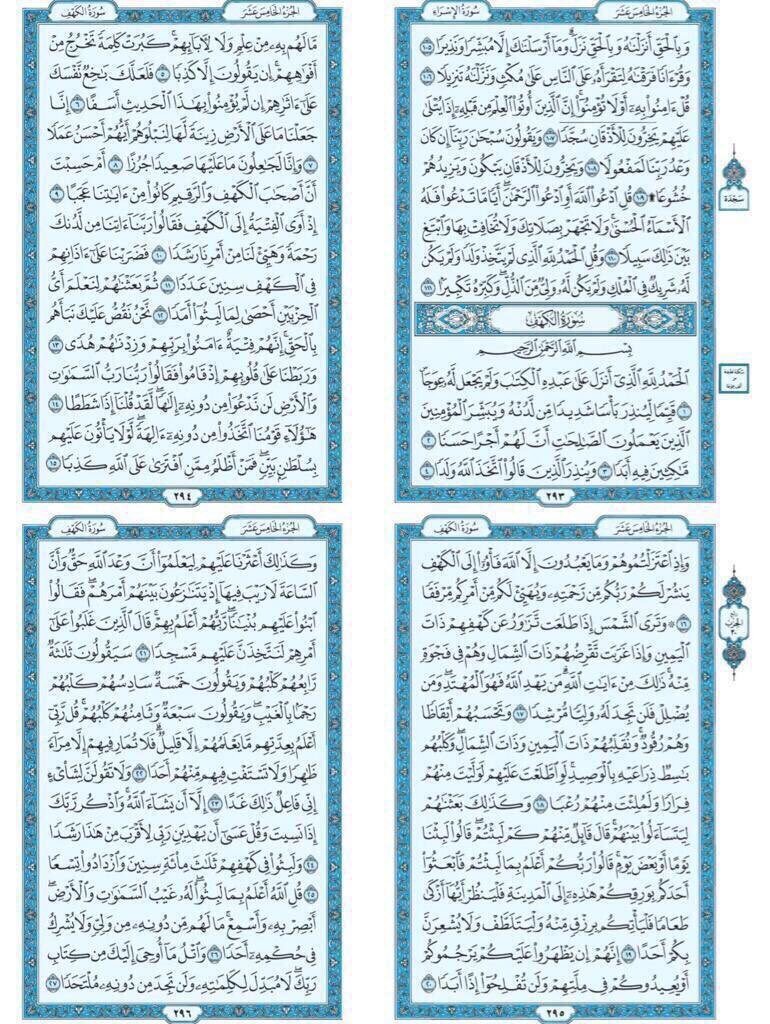 سُورَةُ الإِسْرَاءِ
الجُزْءُ الخَامِسَ عَشَرَ
وَبِالْحَقِّ أَنزَلْنَاهُ وَبِالْحَقِّ نَزَلَ وَمَا أَرْسَلْنَاكَ إِلَّا مُبَشِّرًا وَنَذِيرًا ١٠٥
وَقُرْءَانًا فَرَقْنَاهُ لِتَقْرَأَهُ عَلَى النَّاسِ عَلَىٰ مُكْثٍ وَنَزَّلْنَاهُ تَنزِيلًا ١٠٦
قُلْ ءَامِنُوا بِهِ أَوْ لَا تُؤْمِنُوا إِنَّ الَّذِينَ أُوتُوا الْعِلْمَ مِن قَبْلِهِ إِذَا يُتْلَىٰ
عَلَيْهِمْ يَخِرُّونَ لِلْأَذْقَانِ سُجَّدًا ١٠٧ وَيَقُولُونَ سُبْحَانَ رَبِّنَا إِن كَانَ
وَعْدُ رَبِّنَا لَمَفْعُولًا ١٠٨ وَيَخِرُّونَ لِلْأَذْقَانِ يَبْكُونَ وَيَزِيدُهُمْ
خُشُوعًا ۩ ١٠٩ قُلِ ادْعُوا اللَّهَ أَوِ ادْعُوا الرَّحْمَٰنَ أَيًّا مَّا تَدْعُوا فَلَهُ
الْأَسْمَاءُ الْحُسْنَىٰ وَلَا تَجْهَرْ بِصَلَاتِكَ وَلَا تُخَافِتْ بِهَا وَابْتَغِ
بَيْنَ ذَٰلِكَ سَبِيلًا ١١٠ وَقُلِ الْحَمْدُ لِلَّهِ الَّذِي لَمْ يَتَّخِذْ وَلَدًا وَلَمْ يَكُن
لَّهُ شَرِيكٌ فِي الْمُلْكِ وَلَمْ يَكُن لَّهُ وَلِيٌّ مِّنَ الذُّلِّ وَكَبِّرْهُ تَكْبِيرًا ١١١
سُورَةُ الكَهْفِ
بِسْمِ اللَّهِ الرَّحْمَٰنِ الرَّحِيمِ
الْحَمْدُ لِلَّهِ الَّذِي أَنزَلَ عَلَىٰ عَبْدِهِ الْكِتَابَ وَلَمْ يَجْعَل لَّهُ عِوَجًا
١ قَيِّمًا لِّيُنذِرَ بَأْسًا شَدِيدًا مِّن لَّدُنْهُ وَيُبَشِّرَ الْمُؤْمِنِينَ
الَّذِينَ يَعْمَلُونَ الصَّالِحَاتِ أَنَّ لَهُمْ أَجْرًا حَسَنًا ٢
مَّاكِثِينَ فِيهِ أَبَدًا ٣ وَيُنذِرَ الَّذِينَ قَالُوا اتَّخَذَ اللَّهُ وَلَدًا ٤
٢٩٣
سَجْدَة
سُورَةُ الكَهْفِ
الجُزْءُ الخَامِسَ عَشَرَ
مَّا لَهُم بِهِ مِنْ عِلْمٍ وَلَا لِآبَائِهِمْ كَبُرَتْ كَلِمَةً تَخْرُجُ مِنْ
أَفْوَاهِهِمْ إِن يَقُولُونَ إِلَّا كَذِبًا ٥ فَلَعَلَّكَ بَاخِعٌ نَّفْسَكَ
عَلَىٰ ءَاثَارِهِمْ إِن لَّمْ يُؤْمِنُوا بِهَٰذَا الْحَدِيثِ أَسَفًا ٦ إِنَّا
جَعَلْنَا مَا عَلَى الْأَرْضِ زِينَةً لَّهَا لِنَبْلُوَهُمْ أَيُّهُمْ أَحْسَنُ عَمَلًا
٧ وَإِنَّا لَجَاعِلُونَ مَا عَلَيْهَا صَعِيدًا جُرُزًا ٨ أَمْ حَسِبْتَ
أَنَّ أَصْحَابَ الْكَهْفِ وَالرَّقِيمِ كَانُوا مِنْ ءَايَاتِنَا عَجَبًا ٩
إِذْ أَوَى الْفِتْيَةُ إِلَى الْكَهْفِ فَقَالُوا رَبَّنَا ءَاتِنَا مِن لَّدُنكَ
رَحْمَةً وَهَيِّئْ لَنَا مِنْ أَمْرِنَا رَشَدًا ١٠ فَضَرَبْنَا عَلَىٰ ءَاذَانِهِمْ
فِي الْكَهْفِ سِنِينَ عَدَدًا ١١ ثُمَّ بَعَثْنَاهُمْ لِنَعْلَمَ أَيُّ
الْحِزْبَيْنِ أَحْصَىٰ لِمَا لَبِثُوا أَمَدًا ١٢ نَّحْنُ نَقُصُّ عَلَيْكَ نَبَأَهُم
بِالْحَقِّ إِنَّهُمْ فِتْيَةٌ ءَامَنُوا بِرَبِّهِمْ وَزِدْنَاهُمْ هُدًى ١٣
وَرَبَطْنَا عَلَىٰ قُلُوبِهِمْ إِذْ قَامُوا فَقَالُوا رَبُّنَا رَبُّ السَّمَاوَاتِ
وَالْأَرْضِ لَن نَّدْعُوَا مِن دُونِهِ إِلَٰهًا لَّقَدْ قُلْنَا إِذًا شَطَطًا ١٤
هَٰؤُلَاءِ قَوْمُنَا اتَّخَذُوا مِن دُونِهِ ءَالِهَةً لَّوْلَا يَأْتُونَ عَلَيْهِم
بِسُلْطَانٍ بَيِّنٍ فَمَنْ أَظْلَمُ مِمَّنِ افْتَرَىٰ عَلَى اللَّهِ كَذِبًا ١٥
٢٩٤
سُورَةُ الكَهْفِ
الجُزْءُ الخَامِسَ عَشَرَ
وَإِذِ اعْتَزَلْتُمُوهُمْ وَمَا يَعْبُدُونَ إِلَّا اللَّهَ فَأْوُوا إِلَى الْكَهْفِ
يَنشُرْ لَكُمْ رَبُّكُم مِّن رَّحْمَتِهِ وَيُهَيِّئْ لَكُم مِّنْ أَمْرِكُم مِّرْفَقًا
١٦ ۞ وَتَرَى الشَّمْسَ إِذَا طَلَعَت تَّزَاوَرُ عَن كَهْفِهِمْ ذَاتَ
الْيَمِينِ وَإِذَا غَرَبَت تَّقْرِضُهُمْ ذَاتَ الشِّمَالِ وَهُمْ فِي فَجْوَةٍ
مِّنْهُ ذَٰلِكَ مِنْ ءَايَاتِ اللَّهِ مَن يَهْدِ اللَّهُ فَهُوَ الْمُهْتَدِ وَمَن
يُضْلِلْ فَلَن تَجِدَ لَهُ وَلِيًّا مُّرْشِدًا ١٧ وَتَحْسَبُهُمْ أَيْقَاظًا
وَهُمْ رُقُودٌ وَنُقَلِّبُهُمْ ذَاتَ الْيَمِينِ وَذَاتَ الشِّمَالِ وَكَلْبُهُم
بَاسِطٌ ذِرَاعَيْهِ بِالْوَصِيدِ لَوِ اطَّلَعْتَ عَلَيْهِمْ لَوَلَّيْتَ مِنْهُمْ
فِرَارًا وَلَمُلِئْتَ مِنْهُمْ رُعْبًا ١٨ وَكَذَٰلِكَ بَعَثْنَاهُمْ
لِيَتَسَاءَلُوا بَيْنَهُمْ قَالَ قَائِلٌ مِّنْهُمْ كَمْ لَبِثْتُمْ قَالُوا لَبِثْنَا
يَوْمًا أَوْ بَعْضَ يَوْمٍ قَالُوا رَبُّكُمْ أَعْلَمُ بِمَا لَبِثْتُمْ فَابْعَثُوا
أَحَدَكُم بِوَرِقِكُمْ هَٰذِهِ إِلَى الْمَدِينَةِ فَلْيَنظُرْ أَيُّهَا أَزْكَىٰ
طَعَامًا فَلْيَأْتِكُم بِرِزْقٍ مِّنْهُ وَلْيَتَلَطَّفْ وَلَا يُشْعِرَنَّ
بِكُمْ أَحَدًا ١٩ إِنَّهُمْ إِن يَظْهَرُوا عَلَيْكُمْ يَرْجُمُوكُمْ
أَوْ يُعِيدُوكُمْ فِي مِلَّتِهِمْ وَلَن تُفْلِحُوا إِذًا أَبَدًا ٢٠
٢٩٥
الحِزْب
٣٠
سُورَةُ الكَهْفِ
الجُزْءُ الخَامِسَ عَشَرَ
وَكَذَٰلِكَ أَعْثَرْنَا عَلَيْهِمْ لِيَعْلَمُوا أَنَّ وَعْدَ اللَّهِ حَقٌّ وَأَنَّ
السَّاعَةَ لَا رَيْبَ فِيهَا إِذْ يَتَنَازَعُونَ بَيْنَهُمْ أَمْرَهُمْ فَقَالُوا
ابْنُوا عَلَيْهِم بُنْيَانًا رَّبُّهُمْ أَعْلَمُ بِهِمْ قَالَ الَّذِينَ غَلَبُوا عَلَىٰ
أَمْرِهِمْ لَنَتَّخِذَنَّ عَلَيْهِم مَّسْجِدًا ٢١ سَيَقُولُونَ ثَلَاثَةٌ
رَّابِعُهُمْ كَلْبُهُمْ وَيَقُولُونَ خَمْسَةٌ سَادِسُهُمْ كَلْبُهُمْ
رَجْمًا بِالْغَيْبِ وَيَقُولُونَ سَبْعَةٌ وَثَامِنُهُمْ كَلْبُهُمْ قُل رَّبِّي
أَعْلَمُ بِعِدَّتِهِم مَّا يَعْلَمُهُمْ إِلَّا قَلِيلٌ فَلَا تُمَارِ فِيهِمْ إِلَّا مِرَاءً
ظَاهِرًا وَلَا تَسْتَفْتِ فِيهِم مِّنْهُمْ أَحَدًا ٢٢ وَلَا تَقُولَنَّ لِشَايْءٍ
إِنِّي فَاعِلٌ ذَٰلِكَ غَدًا ٢٣ إِلَّا أَن يَشَاءَ اللَّهُ وَاذْكُر رَّبَّكَ
إِذَا نَسِيتَ وَقُلْ عَسَىٰ أَن يَهْدِيَنِ رَبِّي لِأَقْرَبَ مِنْ هَٰذَا رَشَدًا
٢٤ وَلَبِثُوا فِي كَهْفِهِمْ ثَلَاثَ مِائَةٍ سِنِينَ وَازْدَادُوا تِسْعًا
٢٥ قُلِ اللَّهُ أَعْلَمُ بِمَا لَبِثُوا لَهُ غَيْبُ السَّمَاوَاتِ وَالْأَرْضِ
أَبْصِرْ بِهِ وَأَسْمِعْ مَا لَهُم مِّن دُونِهِ مِن وَلِيٍّ وَلَا يُشْرِكُ
فِي حُكْمِهِ أَحَدًا ٢٦ وَاتْلُ مَا أُوحِيَ إِلَيْكَ مِن كِتَابِ
رَبِّكَ لَا مُبَدِّلَ لِكَلِمَاتِهِ وَلَن تَجِدَ مِن دُونِهِ مُلْتَحَدًا ٢٧
٢٩٦